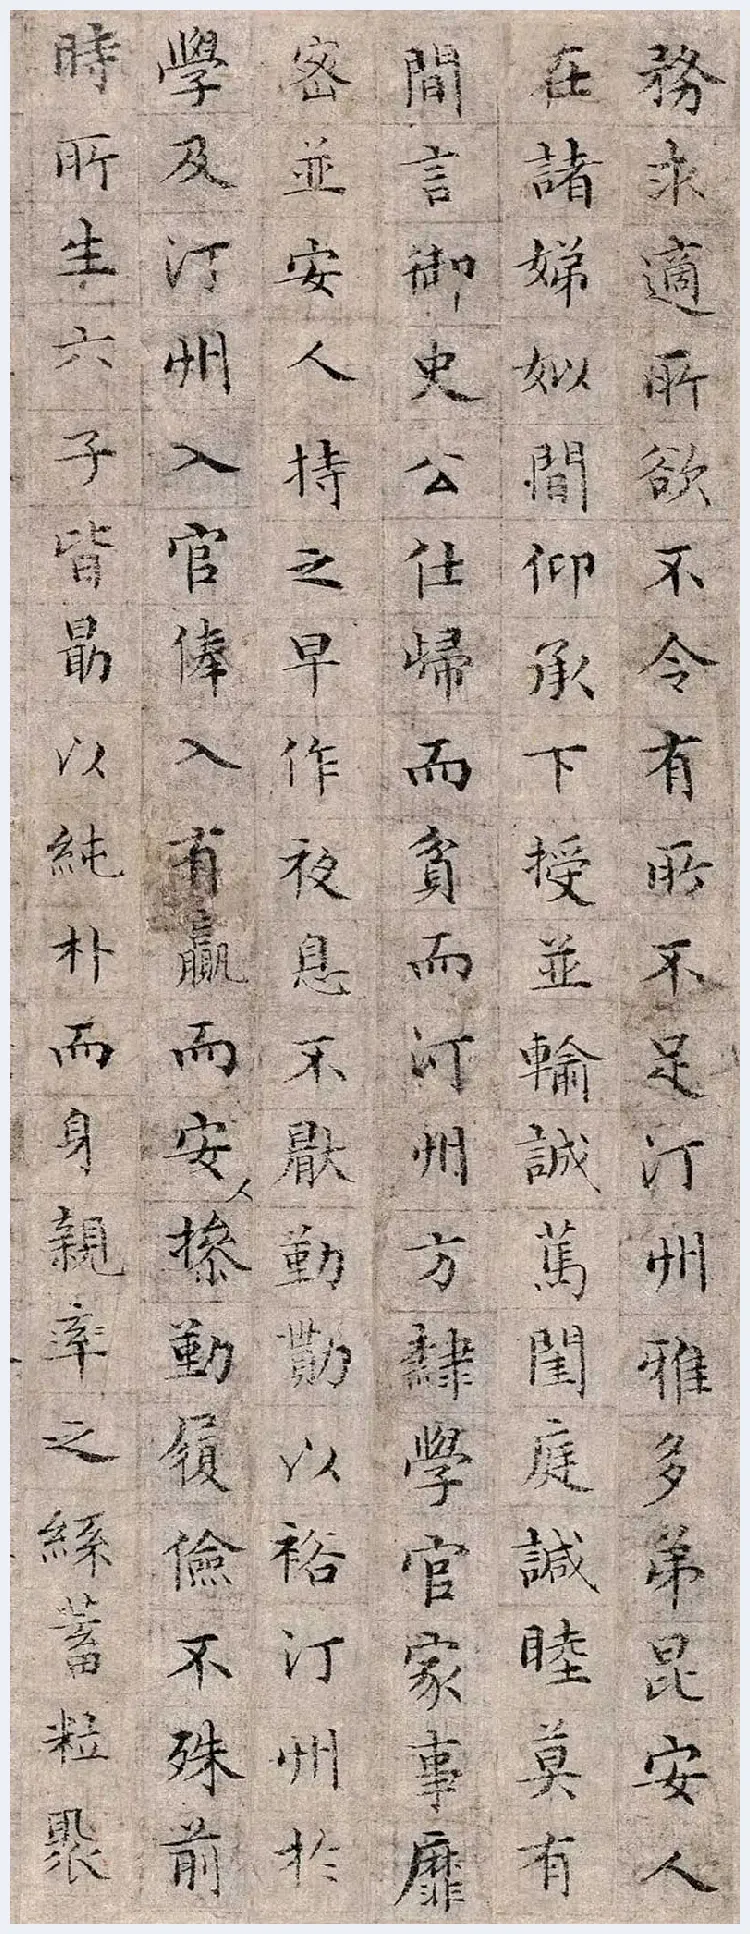 務求適所欲不令有所不足汀州雅多弟昆安人
在諸娣姒間仰承下授並輸誠萬閨庭諴睦莫有
間言御史公仕歸而貧而汀州方隸學官家事靡
密並安人持之早作夜息不厭勤勩以裕汀州於
學及汀州入官俸入有贏而安人摻勤履儉不殊前
時所生六子皆勗以純朴而身親率之絲蓄粒聚